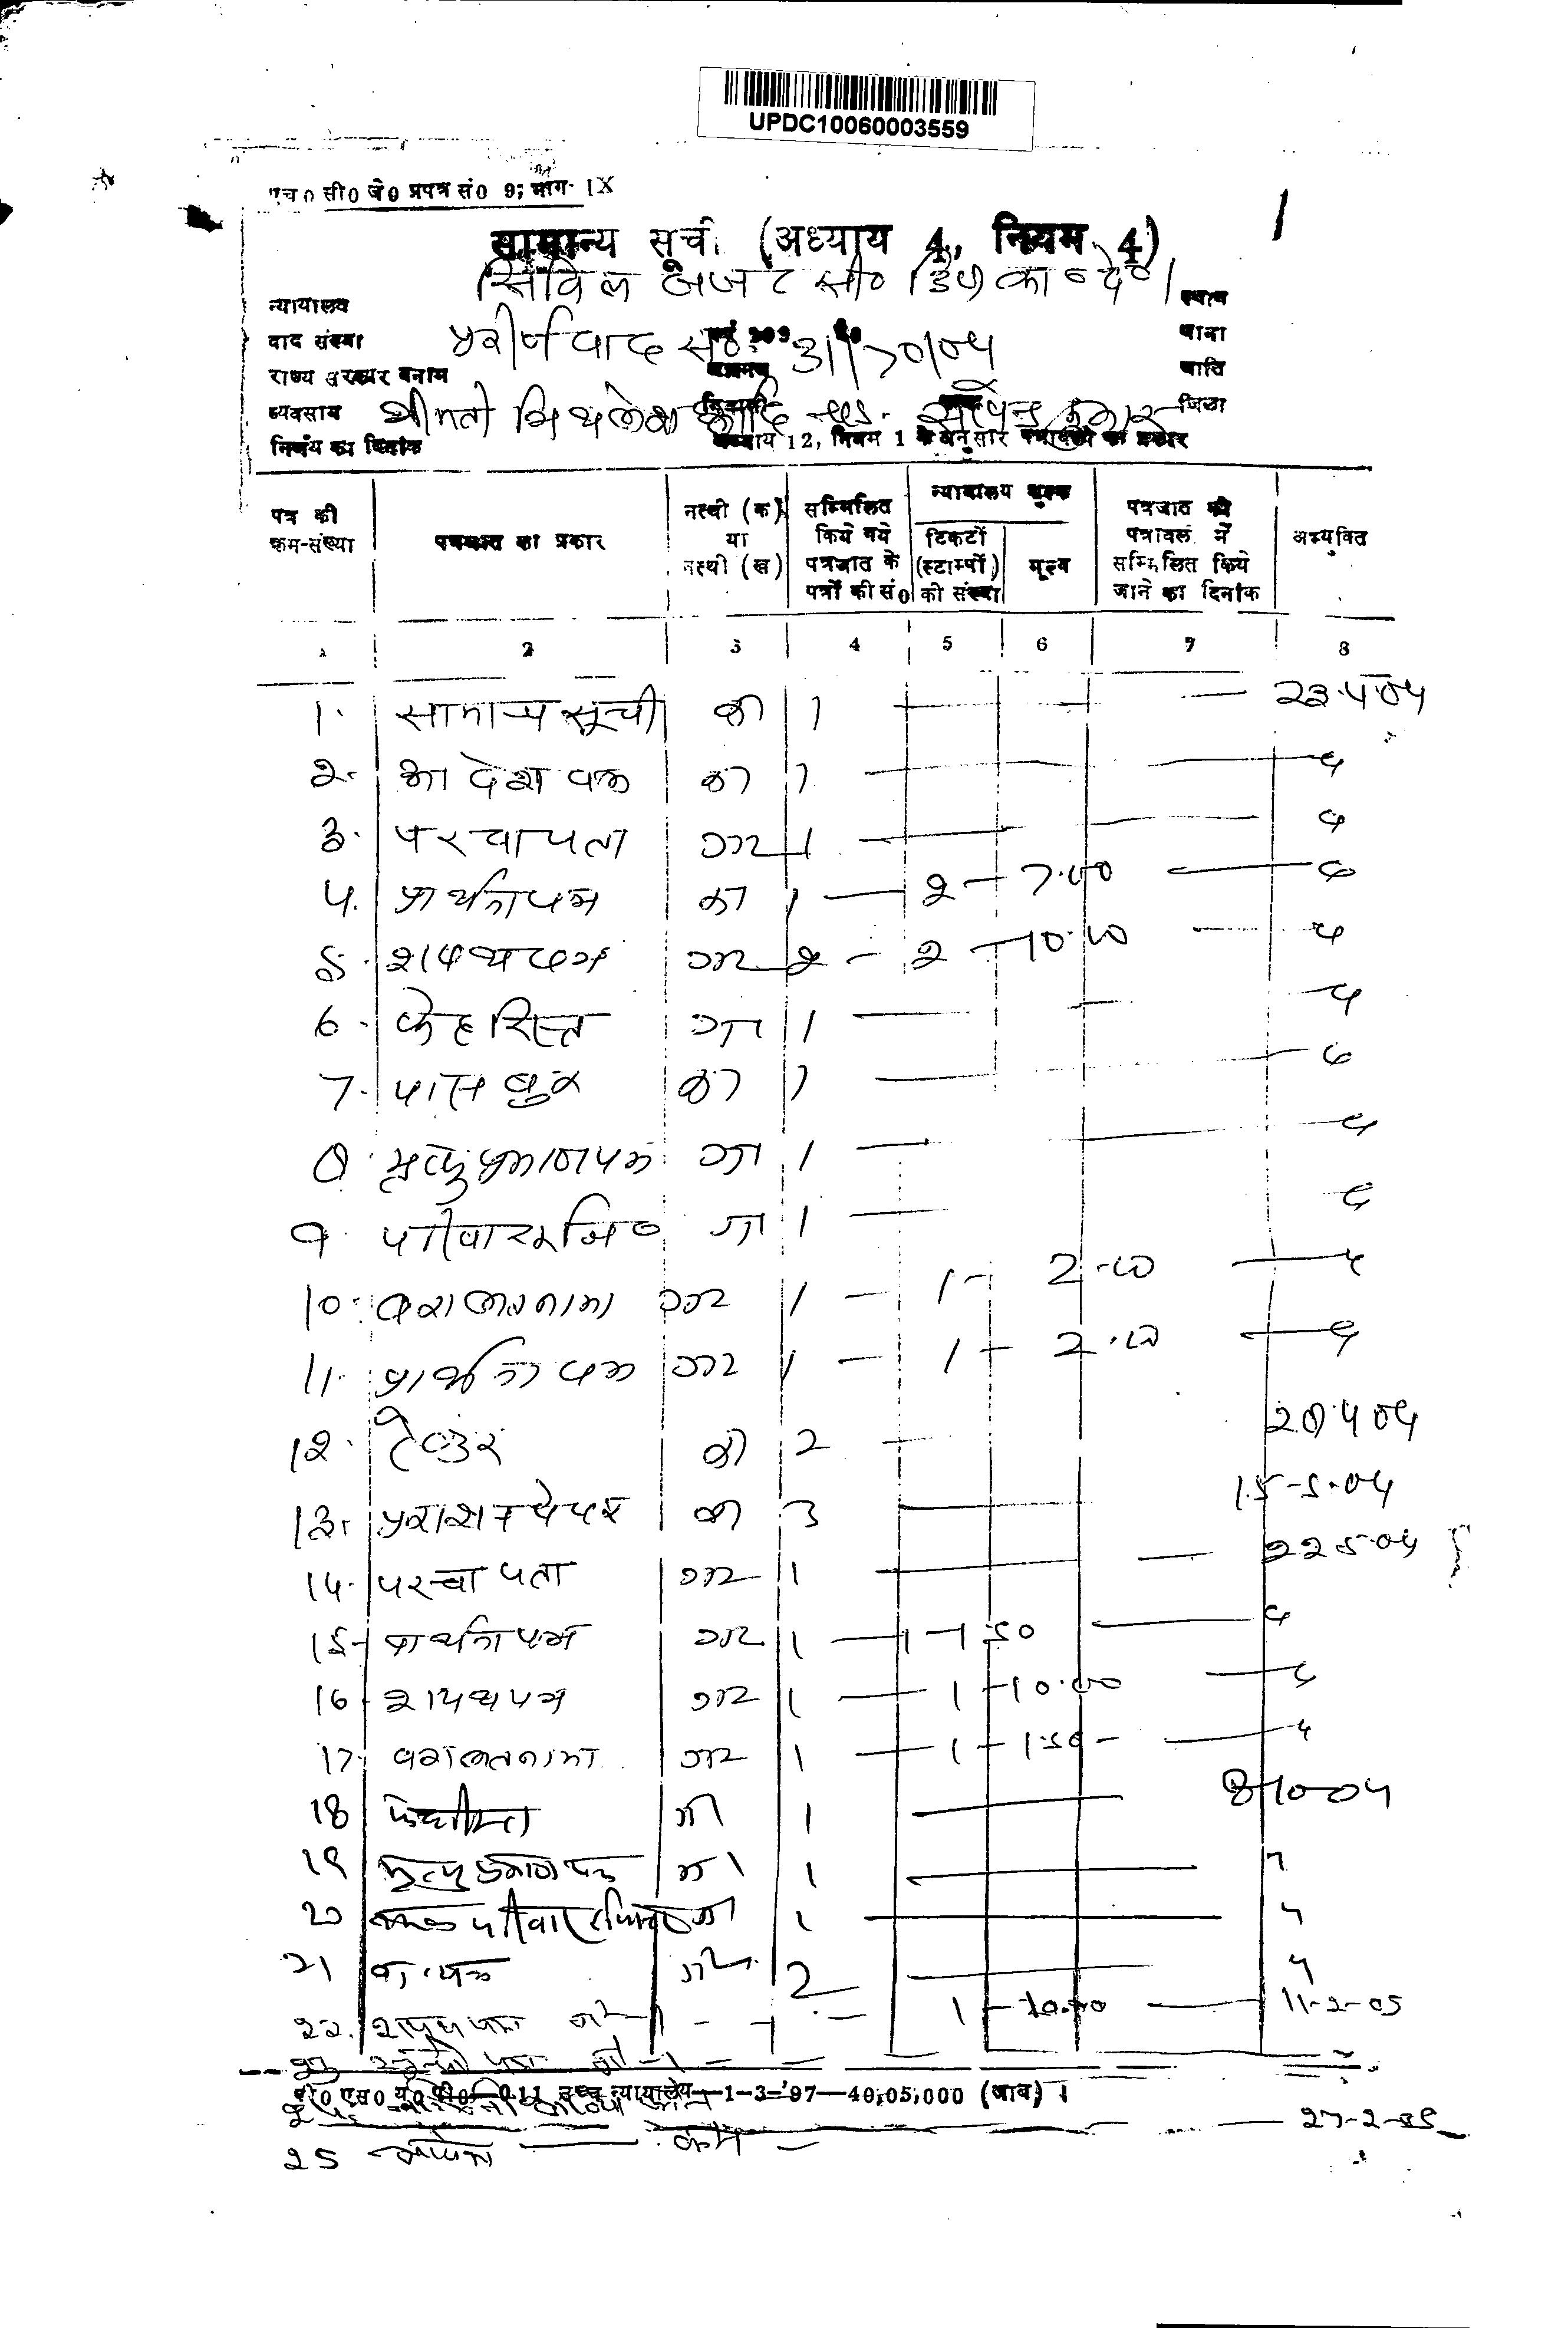 UPDC10060003559
एच० सी० जे० प्रपत्र सं० 9, भाग- IX
1
सामान्य सूची (अध्याय 4, नियम 4)
सिविल जज सी० डि० का० दे०
न्यायालय स्थान
वाद संख्या प्रकीर्णवाद सं० 31/70/04 थाना
राज्य सरकार बनाम जाति
व्यवसाय श्रीमती मिथलेश आदि सत्येन्द्र कुमार जिला
निर्णय का दिनांक अध्याय 12, नियम 1 के अनुसार पत्रावली का प्रकार
पत्र की क्रम-संख्या पत्रजात का प्रकार नत्थी (क) या नत्थी (ख) सम्मिलित किये गये पत्रजात के पत्रों की सं० न्यायालय शुल्क टिकटों (स्टाम्पों) की संख्या मूल्य पत्रजात की पत्रावली में सम्मिलित किये जाने का दिनांक अभ्युक्ति
1 2 3 4 5 6 7 8
1. सामान्य सूची क 1 — — 23.4.04
2. आदेश पत्र क 1 — — "
3. परचा पता ग2 1 — — "
4. प्रार्थना पत्र क 1 — 2 — 7.00 — "
5. शपथ पत्र ग2 2 — 2 — 10.00 — "
6. फेहरिस्त ग1 1 — — "
7. पास बुक क 1 — — "
8. मृत्यु प्रमाण पत्र ग1 1 — — "
9. परीवार रजि० ग1 1 — "
10. वकालतनामा ग2 1 — 1 — 2.00 — "
11. प्रार्थना पत्र ग2 1 — 1 — 2.00 — "
12. टेण्डर क 2 — 28.4.04
13. प्रकाशन पेपर क 3 — 15-5-04
14. परचा पता ग2 1 — — 22.5.04
15. प्रार्थना पत्र ग2 1 — 1 — 1.50 — "
16. शपथ पत्र ग2 1 — 1 — 10.00 — "
17. वकालतनामा ग2 1 — 1 — 1.50 — "
18 1 — 8-10-04
19 मृत्यु प्रमाण पत्र ग1 1 — "
20 परीवार रजिस्टर ग1 1 — "
21 ग2 2 — "
22. शपथ पत्र ग2 1 — 1 — 10.00 — 11-2-05
23
पी० एस० यू० पी०— उच्च न्यायालय—1-3-'97—40,05,000
27-2-05
25